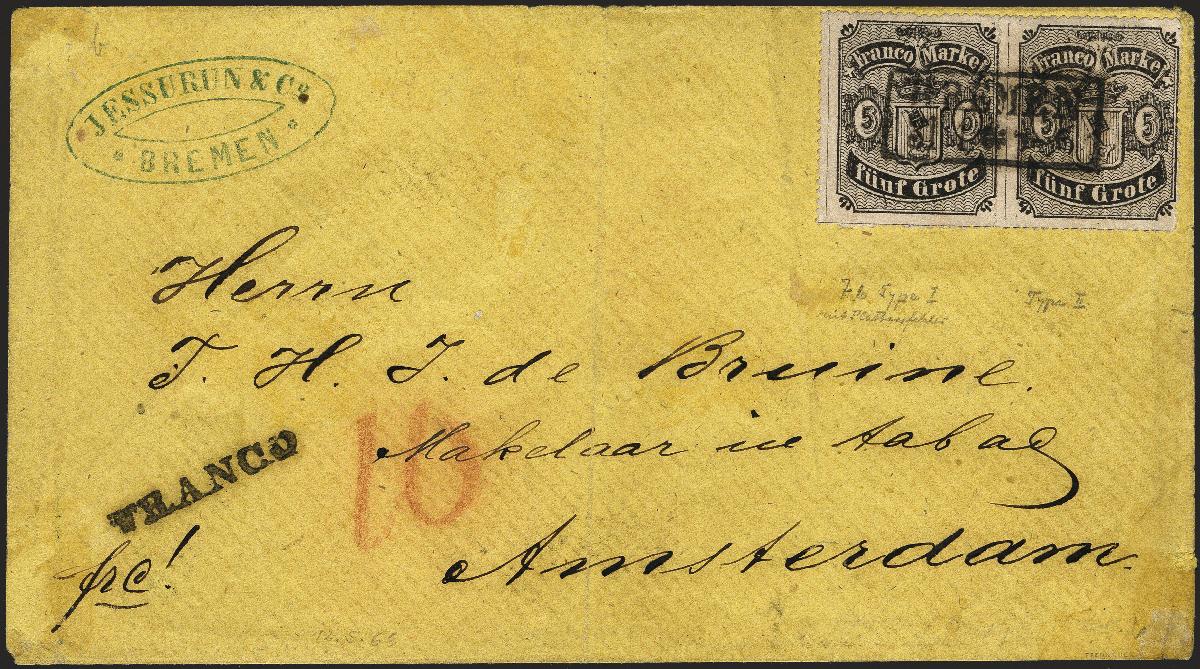 JESSURUN & Co
BREMEN
Franco Marke
5 5
fünf Grote
Franco Marke
5 5
fünf Grote
BREMEN
7b Type I
mit Plattenfehler
Type II
Herrn
J. H. J. de Bruine.
Makelaar in tabac
Amsterdam.
FRANCO
10
frc!
12.5.65